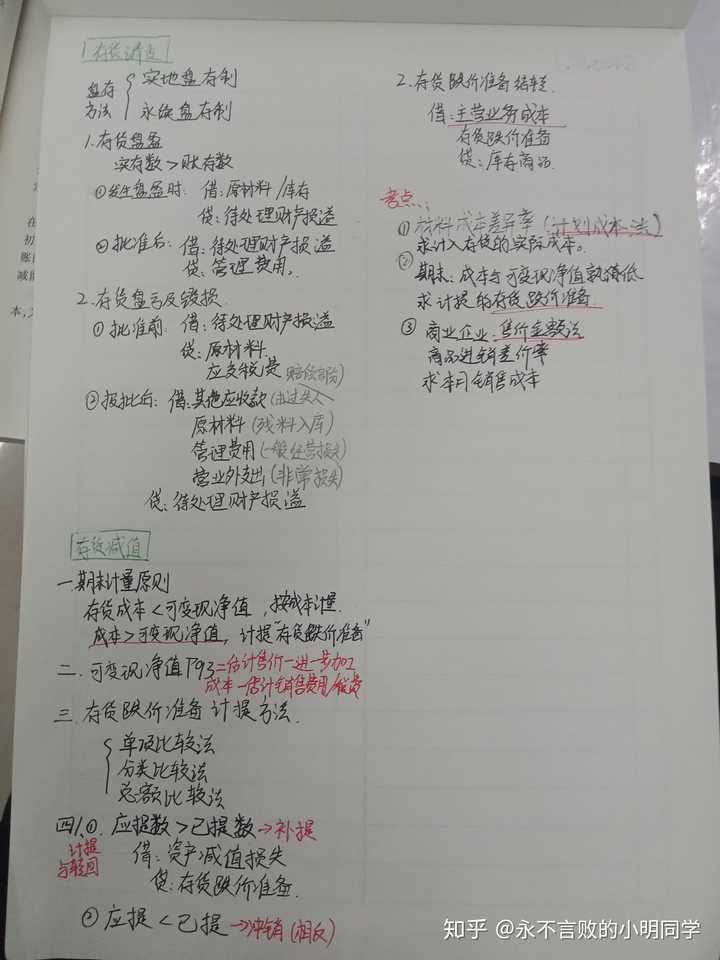 1 存货清查
盘存方法
实地盘存制
永续盘存制
1.存货盘盈
实存数>账存数
①发生盘盈时: 借:原材料/库存
贷:待处理财产损溢
②批准后: 借:待处理财产损溢
贷:管理费用。
2.存货盘亏及毁损.
①批准前: 借:待处理财产损溢
贷:原材料
应交税费
②报批后: 借:其他应收款(
原材料(残料入库)
管理费用(一般经营损失)
营业外支出(非常损失)
贷:待处理财产损溢
存货减值
一.期末计量原则
存货成本<可变现净值,按成本计量.
成本>可变现净值,计提"存货跌价准备"
二.可变现净值P93=估计售价-进一步加工
成本-估计销售费用/税费
三.存货跌价准备计提方法.
单项比较法
分类比较法
总额比较法
四、①.应提数>已提数→补提
计提
与转回
借:资产减值损失
贷:存货跌价准备.
②应提<已提→冲销(相反)
2.存货跌价准备结转.
借:主营业务成本
存货跌价准备
贷:库存商品.
考点:
①材料成本差异率(计划成本法)
求计入存货的实际成本。
②期末:成本与可变现净值孰低
求计提的存货跌价准备.
③商业企业:售价金额法
商品进销差价率
求本月销售成本
知乎 @永不言败的小明同学